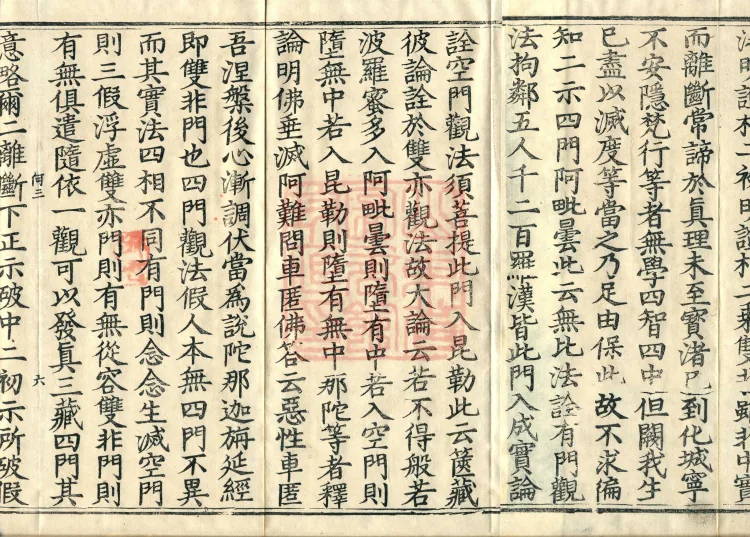 而離斷常諦於真理未至寶渚已到化城寧
不安隱梵行等者無學四智四中但闕我生
已盡以滅度等當之乃足由保此故不求徧
知二示四門阿毗曇此云無比法詮有門觀
法拘鄰五人千二百羅漢皆此門入成實論
詮空門觀法須菩提此門入昆勒此云篋藏
彼論詮於雙亦觀法故大論云若不得般若
波羅蜜多入阿毗曇則墮有中若入空門則
墮無中若入昆勒則墮有無中那陀等者釋
論明佛垂滅阿難問車匿佛答云惡性車匿
吾涅槃後心漸調伏當為說陀那迦旃延經
即雙非門也四門觀法假人本無四門不異
而其實法四相不同有門則念念生滅空門
則三假浮虛雙亦門則有無從容雙非門則
有無俱遣隨依一觀可以發真三藏四門其
何三
六
意略爾二離斷下正示破中二初示所破假